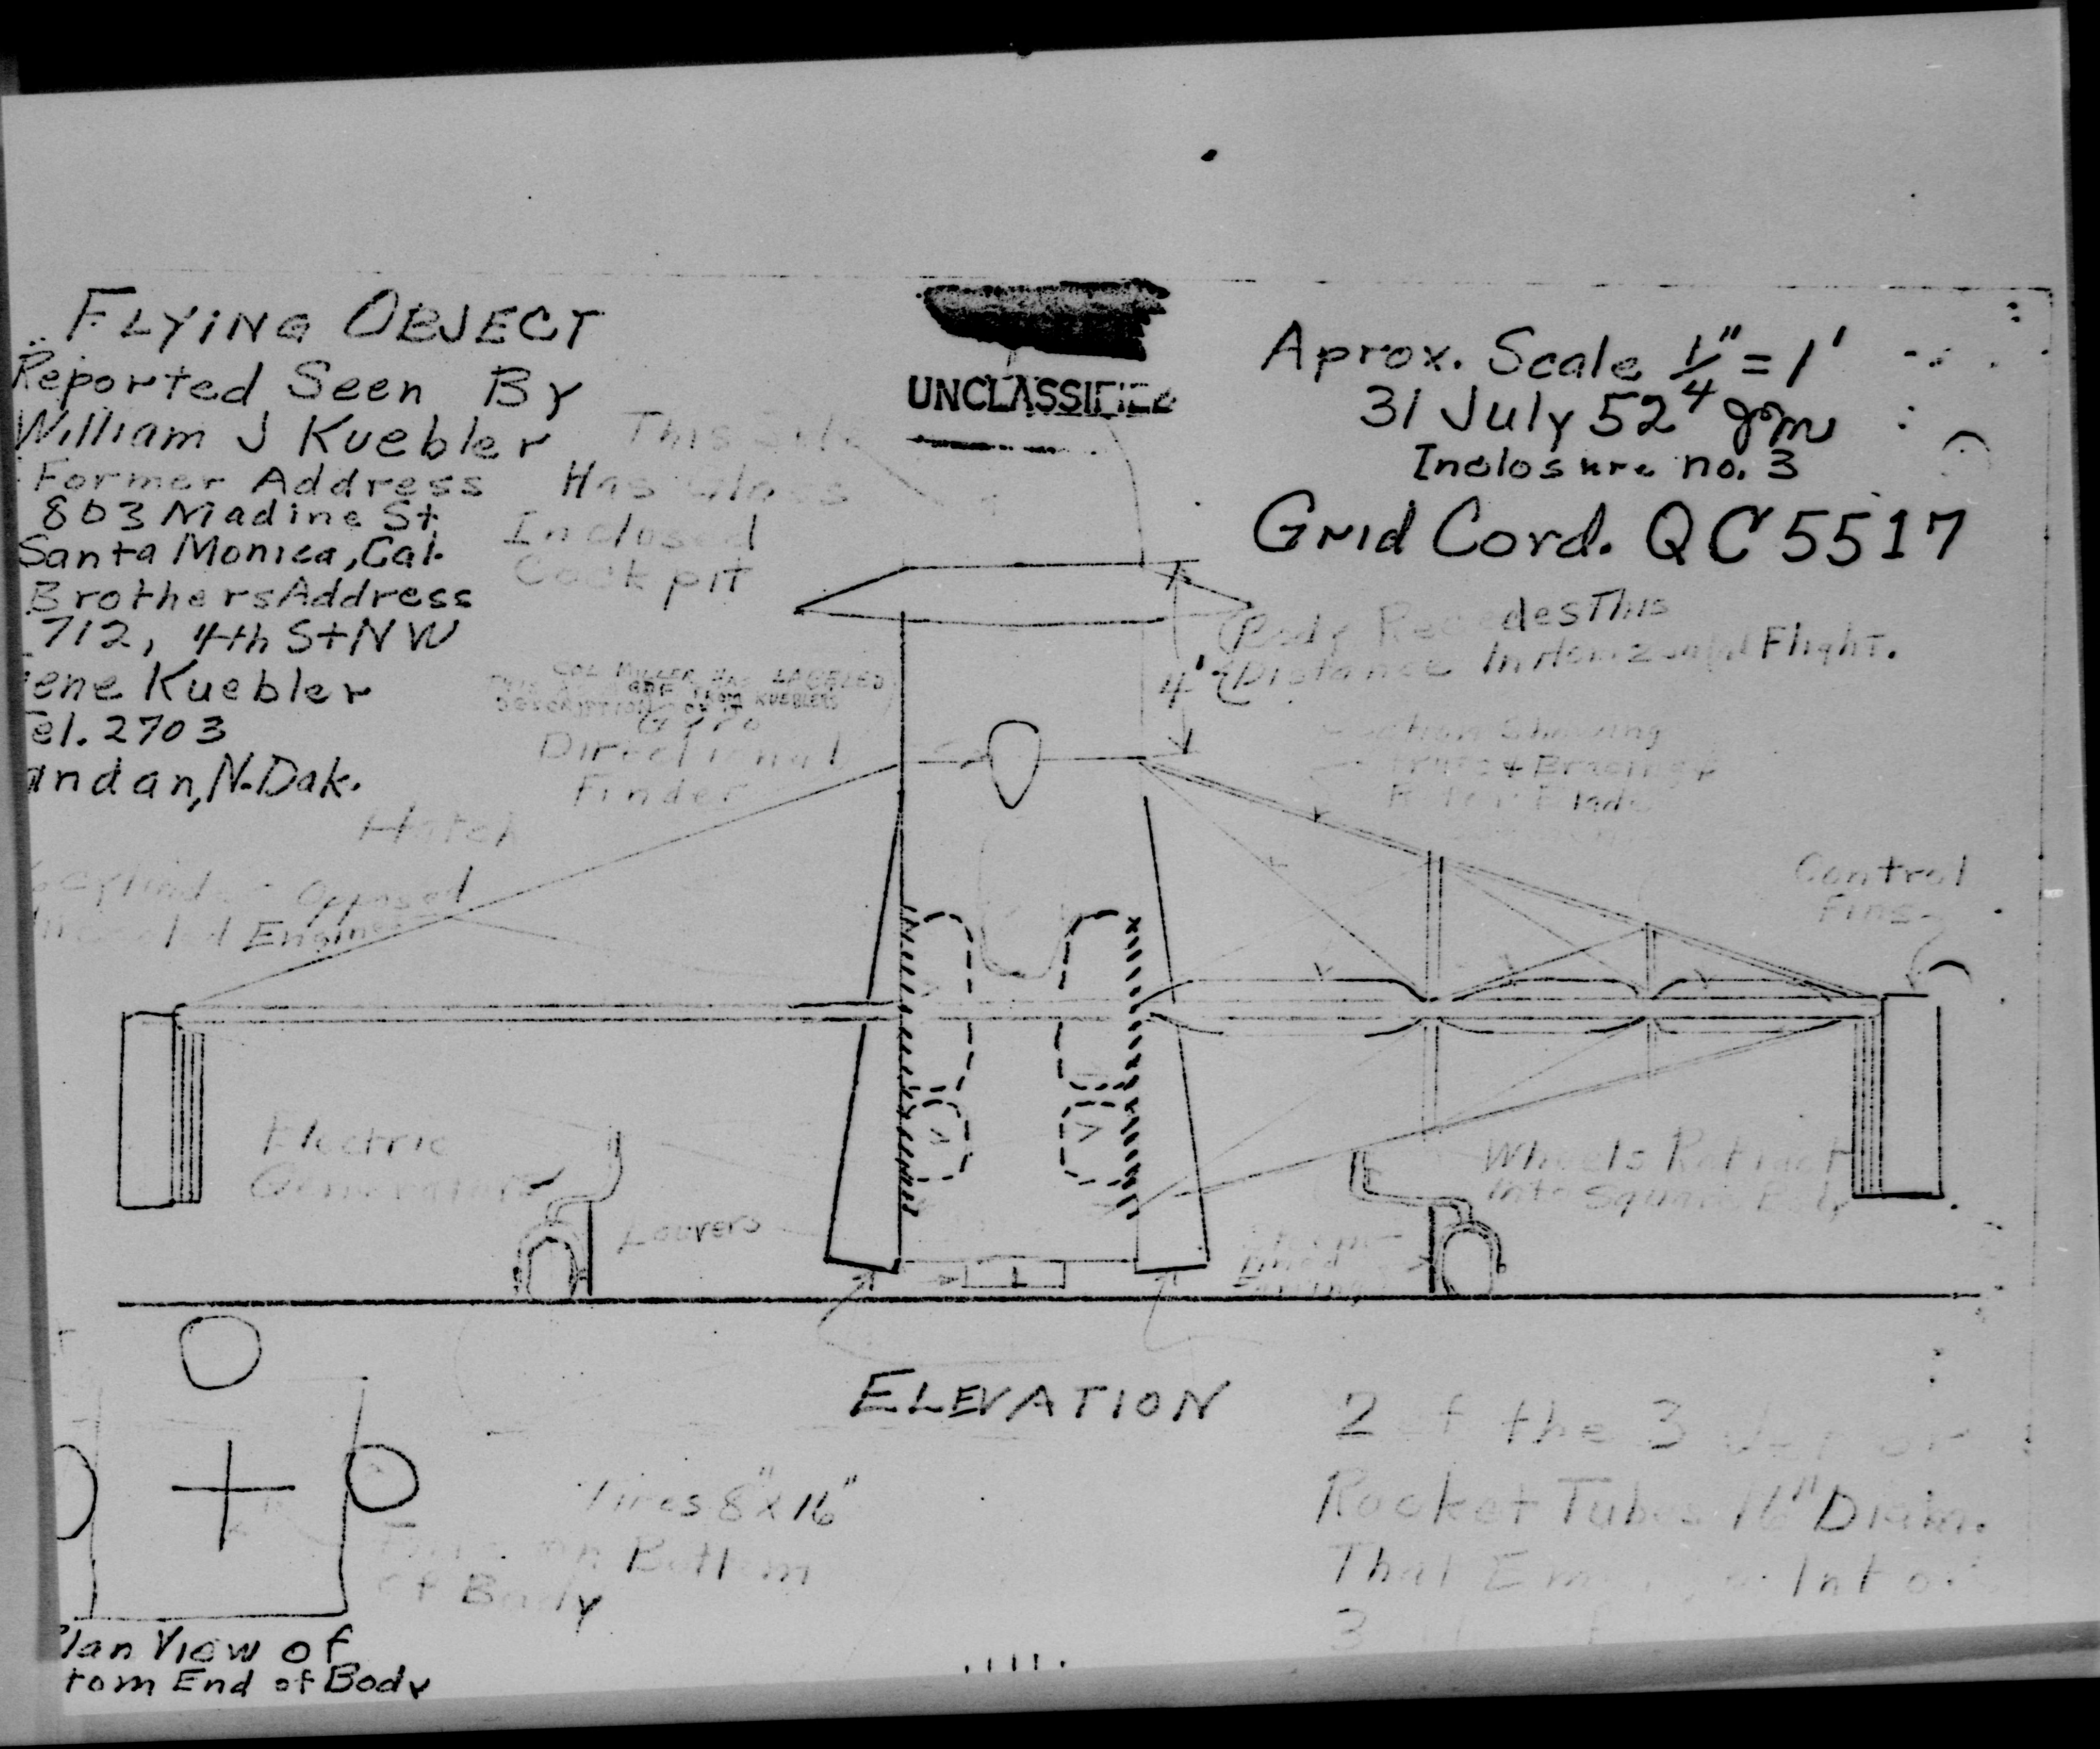 FLYING OBJECT
Reported Seen By
William J Kuebler
Former Address
803 Nadine St
Santa Monica, Cal.
Brothers Address
712, 4th St N W
ene Kuebler
el. 2703
andan, N. Dak.
UNCLASSIFIED
Aprox. Scale 1/4" = 1'
31 July 52
Inclosure no. 3
Grid Cord. QC 5517
This side
Has Glass
Inclosed
Cockpit
Body Recedes This
4' Distance In Horizontal Flight.
COL MILLER HAS LABELED
THIS AS FROM KUEBLERS
DESCRIPTION OF IT
Gyro
Directional
Finder
Showing
Bracing
Rotor Blade
Hatch
Cylinder Opposed
Engine
Control
Fins
Electric
Generators
Louvers
Wheels Retract
Into Square Body
ELEVATION
2 of the 3 Jet or
Rocket Tubes 16" Diam.
That Into
3
Tires 8" x 16"
on Bottom
of Body
lan View of
tom End of Body